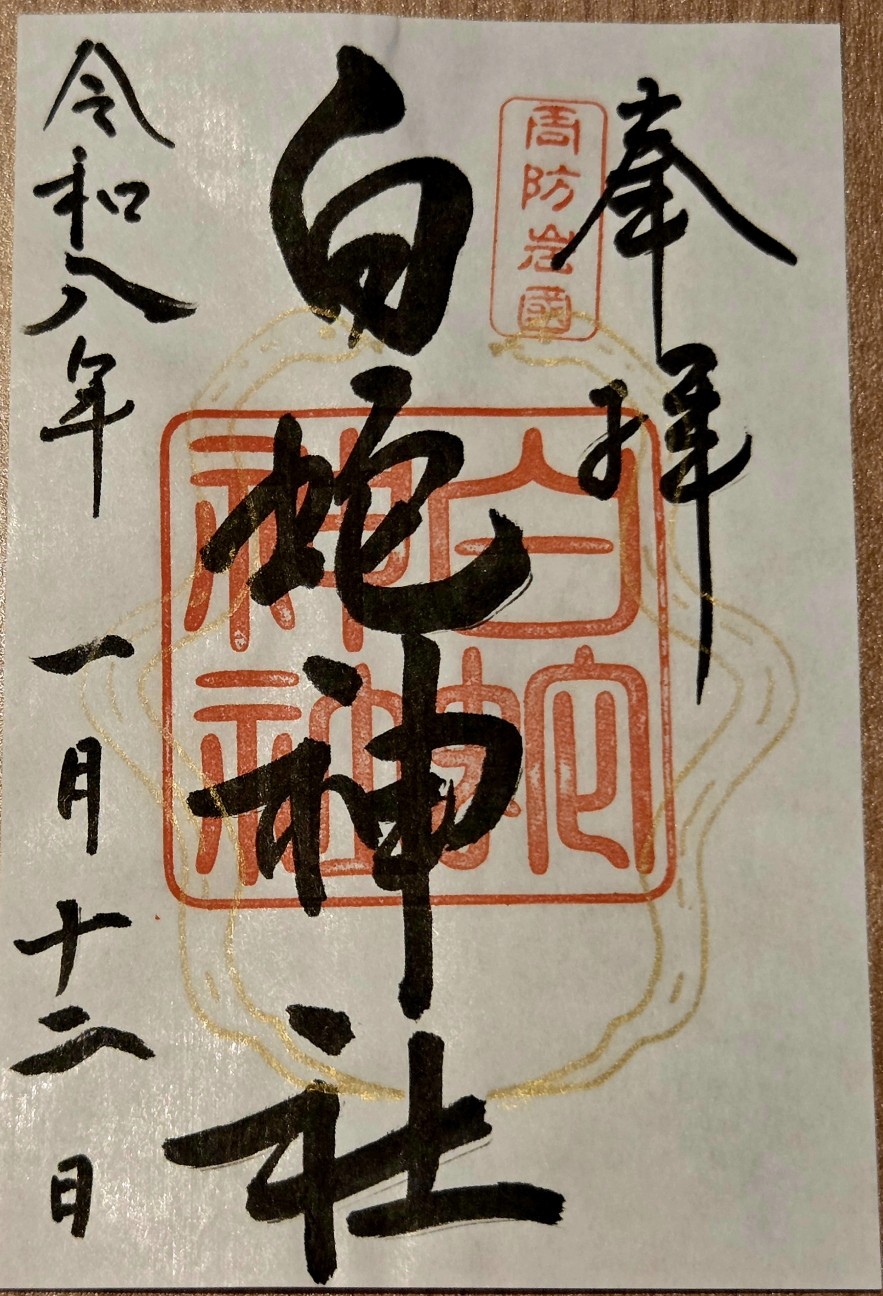 奉拝
周防岩國
白蛇神社
白蛇神社
令和八年 一月十二日